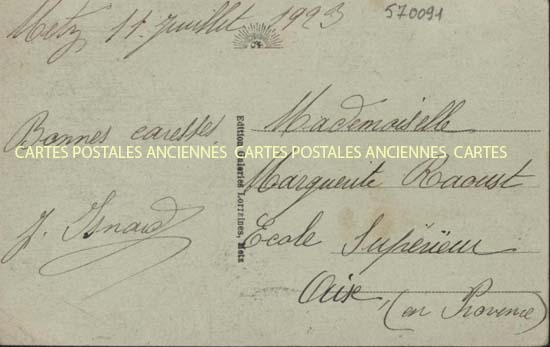 Metz 11 juillet 1923
570091
Bonnes caresses
J. Isnard
Edition Galeries Lorraines, Metz
Mademoiselle
CARTES POSTALES ANCIENNES CARTES POSTALES ANCIENNES CARTES
Marguerite Raoust
Ecole Supérieur
Aix, (en Provence)